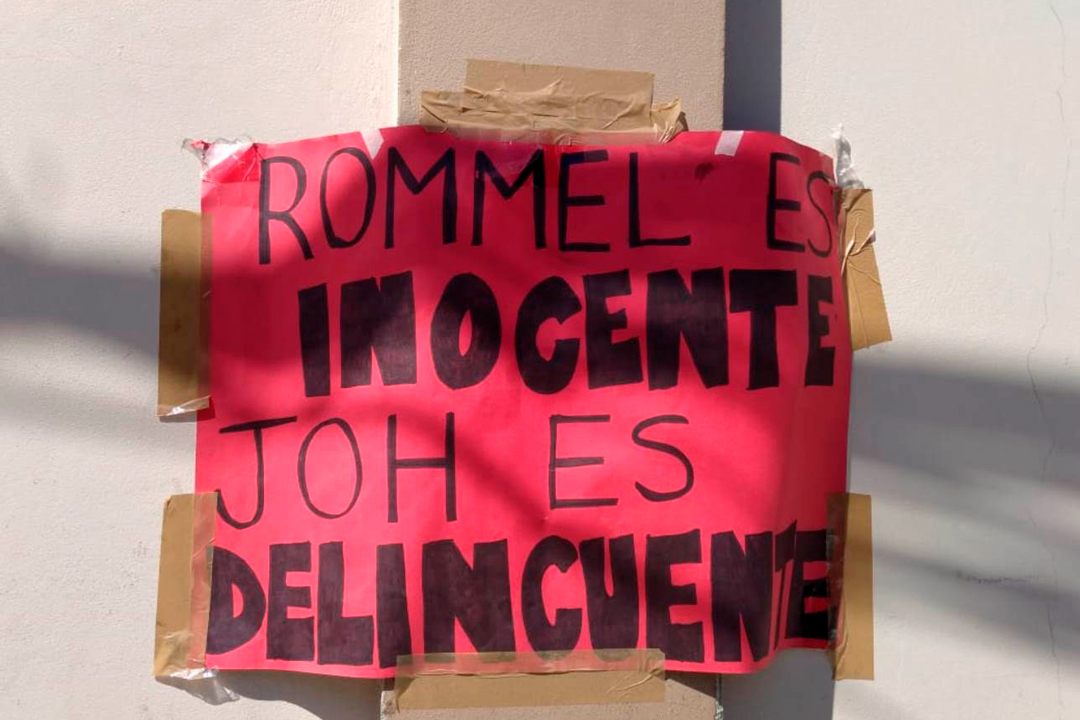 ROMMEL ES
INOCENTE
JOH ES
DELINCUENTE